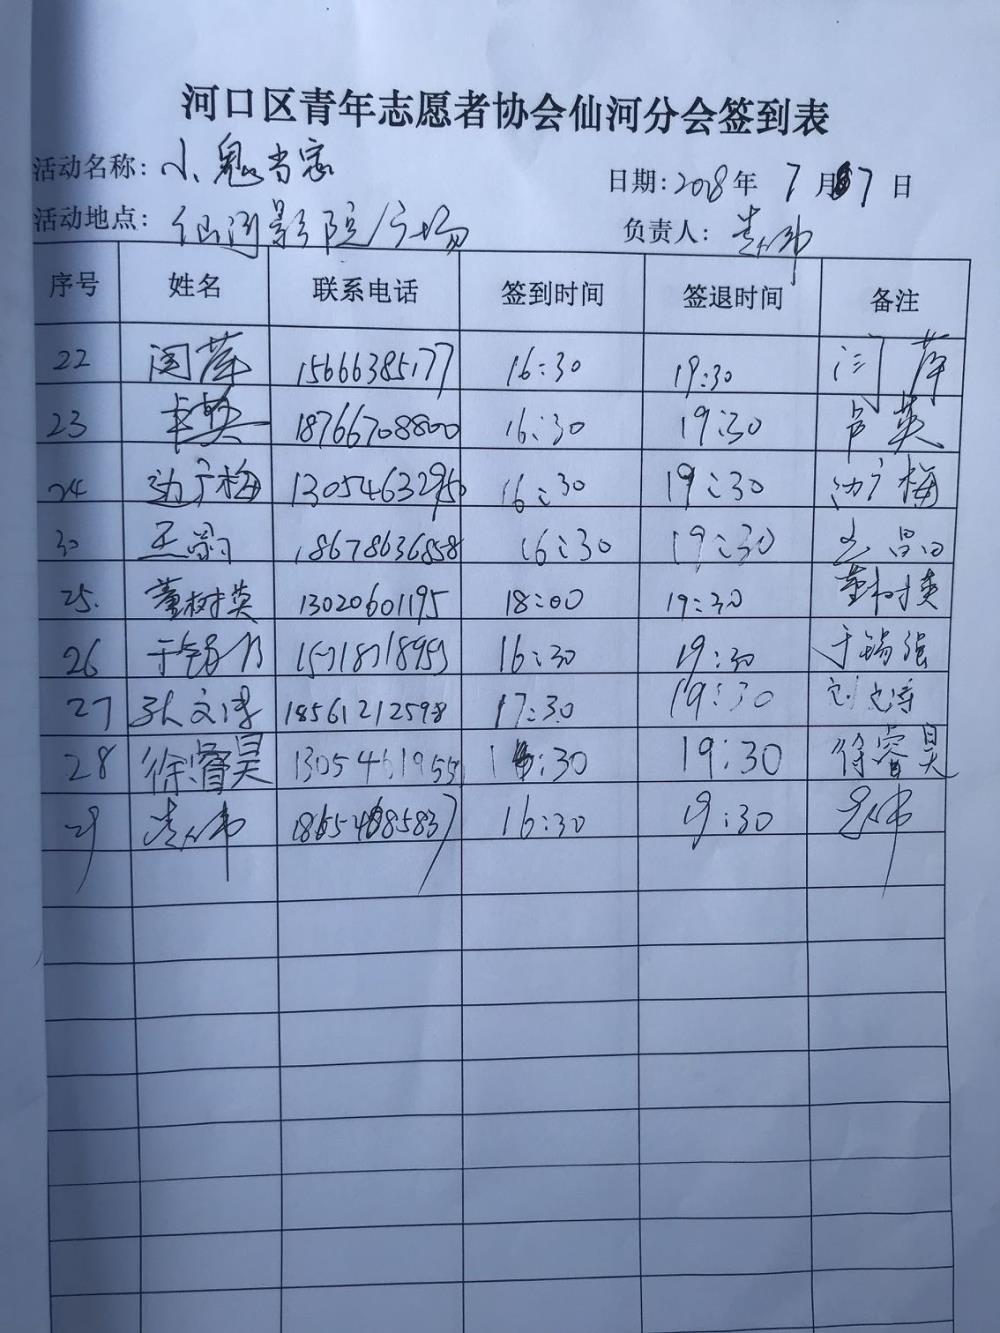 河口区青年志愿者协会仙河分会签到表
活动名称: 小鬼当家 日期: 2018年 7月7日
活动地点: 仙河影院广场 负责人:
序号 姓名 联系电话 签到时间 签退时间 备注
22 闫萍 15666385177 16:30 19:30 闫萍
23 卢英 18766708800 16:30 19:30 卢英
24 边广梅 13054632950 16:30 19:30 边广梅
30 王 18678636858 16:30 19:30 王
25. 董树英 13020601195 18:00 19:30 董树英
26 于锡 15718718953 16:30 19:30 于锡强
27 文涛 18561212598 17:30 19:30
28 徐睿昊 13054619555 16:30 19:30 徐睿昊
29 16:30 19:30